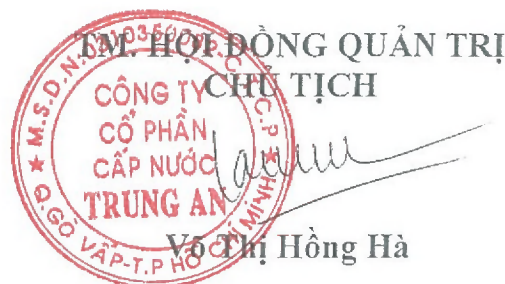 TM. HỘI ĐỒNG QUẢN TRỊ
CHỦ TỊCH
CÔNG TY
CỔ PHẦN
CẤP NƯỚC
TRUNG AN
Q.GÒ VẤP-T.P HỒ CHÍ MINH
Võ Thị Hồng Hà